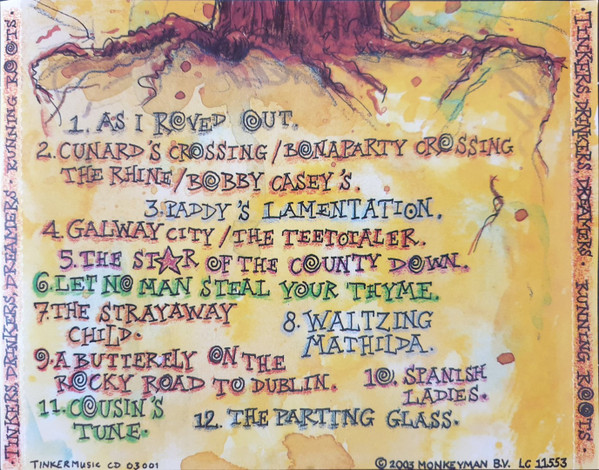 TINKERS, DRINKERS, DREAMERS · RUNNING ROOTS
1. AS I ROVED OUT.
2. CUNARD'S CROSSING/BONAPARTY CROSSING
THE RHINE/BOBBY CASEY'S.
3. PADDY'S LAMENTATION.
4. GALWAY CITY/THE TEETOTALER.
5. THE STAR OF THE COUNTY DOWN.
6. LET NO MAN STEAL YOUR THYME.
7. THE STRAYAWAY
CHILD.
8. WALTZING
MATHILDA.
9. A BUTTERFLY ON THE
ROCKY ROAD TO DUBLIN.
10. SPANISH
LADIES.
11. COUSIN'S
TUNE.
12. THE PARTING GLASS.
TINKERMUSIC CD 03001
© 2003 MONKEYMAN B.V. LC 11553
· TINKERS, DRINKERS, DREAMERS · RUNNING ROOTS ·